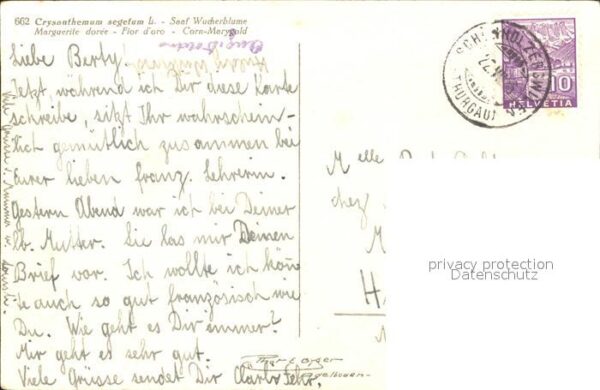 662 Crysanthemum segetum L. - Saat Wucherblume
Marguerite dorée - Fior d'oro - Corn-Marygold
Liebe Berty!
Jetzt während ich Dir diese Karte
schreibe, sitzt Ihr wahrschein-
lich gemütlich zusammen bei
Eurer lieben franz. Lehrerin.
Gestern Abend war ich bei Deiner
lb. Mutter. Sie las mir Deinen
Brief vor. Ich wollte ich könn
te auch so gut französisch wie
Du. Wie geht es Dir immer?
Mir geht es sehr gut.
Viele Grüsse sendet Dir Fehr.
SCHÖNHOLZERSWILEN
THURGAU
10
HELVETIA
Melle
chez
M
H
privacy protection
Datenschutz